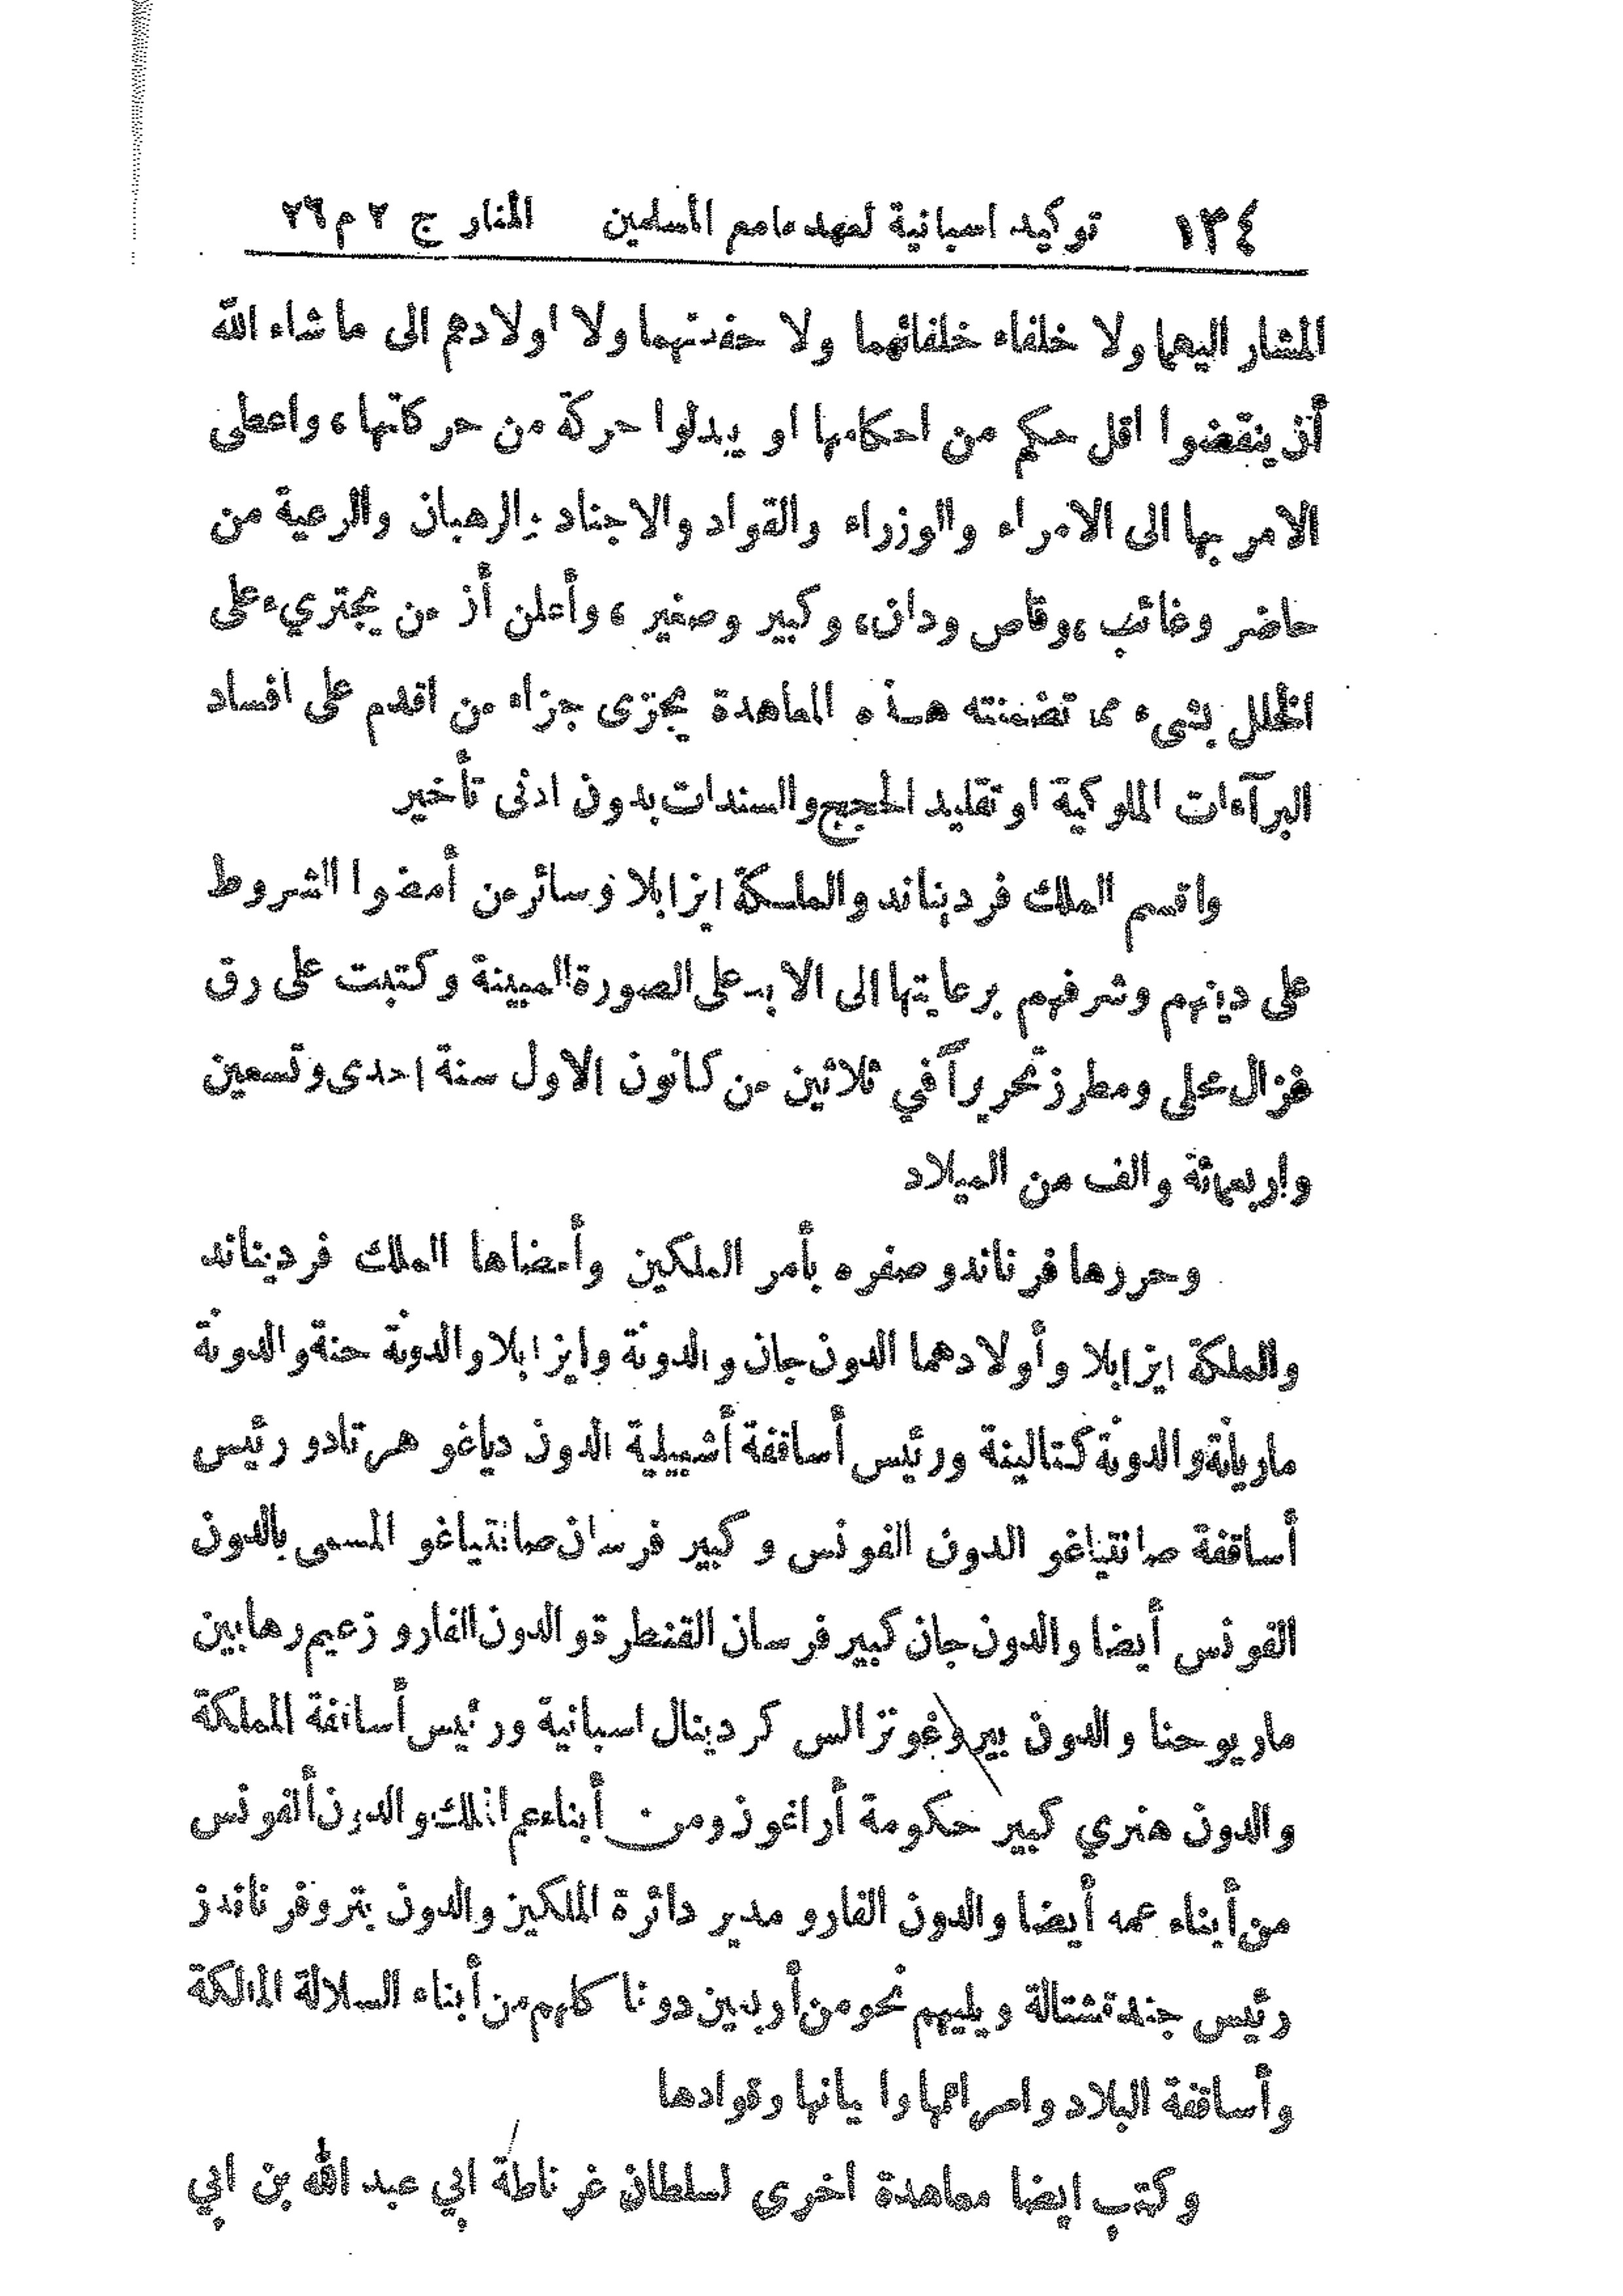 ١٣٤ توكيد اسبانية لعهدها مع المسلمين المنار ج ٢ م ٢٦
المشار اليهما ولا خلفاء خلفائهما ولا حفدتهما ولا اولادهم الى ما شاء الله
أن ينقضوا اقل حكم من احكامها او يبدلوا حركة من حركاتها، واعطى
الامر بها الى الامراء والوزراء والقواد والاجناد والرهبان والرعية من
حاضر وغائب، وقاص ودان، وكبير وصغير، وأعلن أن من يجتريء على
الخلل بشيء مما تضمنته هذه المعاهدة يجزى جزاء من اقدم على افساد
البرآءات الملوكية او تقليد الحجج والسندات بدون ادنى تأخير
واقسم الملك فرديناند والملكة ايزابلا وسائر من أمضوا الشروط
على دينهم وشرفهم برعايتها الى الابد على الصورة المبينة وكتبت على رق
غزال محلى ومطرز تحريراً في ثلاثين من كانون الاول سنة احدى وتسعين
واربعمائة والف من الميلاد
وحررها فرناندو صفره بأمر الملكين وأمضاها الملك فرديناند
والملكة ايزابلا وأولادهما الدون جان والدونة وايزابلا والدونة حنة والدونة
ماريانة والدونة كتالينة ورئيس أساقفة أشبيلية الدون دياغو هرتادو رئيس
أساقفة صانتياغو الدون الفونس وكبير فرسان صانتياغو المسمى بالدون
الفونس أيضا والدون جان كبير فرسان القنطرة والدون الفارو زعيم رهابين
ماريوحنا والدون بيرو غونزالس كردينال اسبانية ورئيس أساقفة المملكة
والدون هنري كبير حكومة أراغون ومن أبناء عم الملك والدون ألفونس
من أبناء عمه أيضا والدون الفارو مدير دائرة الملكين والدون بترو فرناندز
رئيس جند قشتالة ويليهم نحو من أربعين دونا كلهم من أبناء السلالة المالكة
وأساقفة البلاد وامرائها واعيانها وقوادها
وكتب ايضا معاهدة اخرى لسلطان غرناطة ابي عبد الله بن ابي